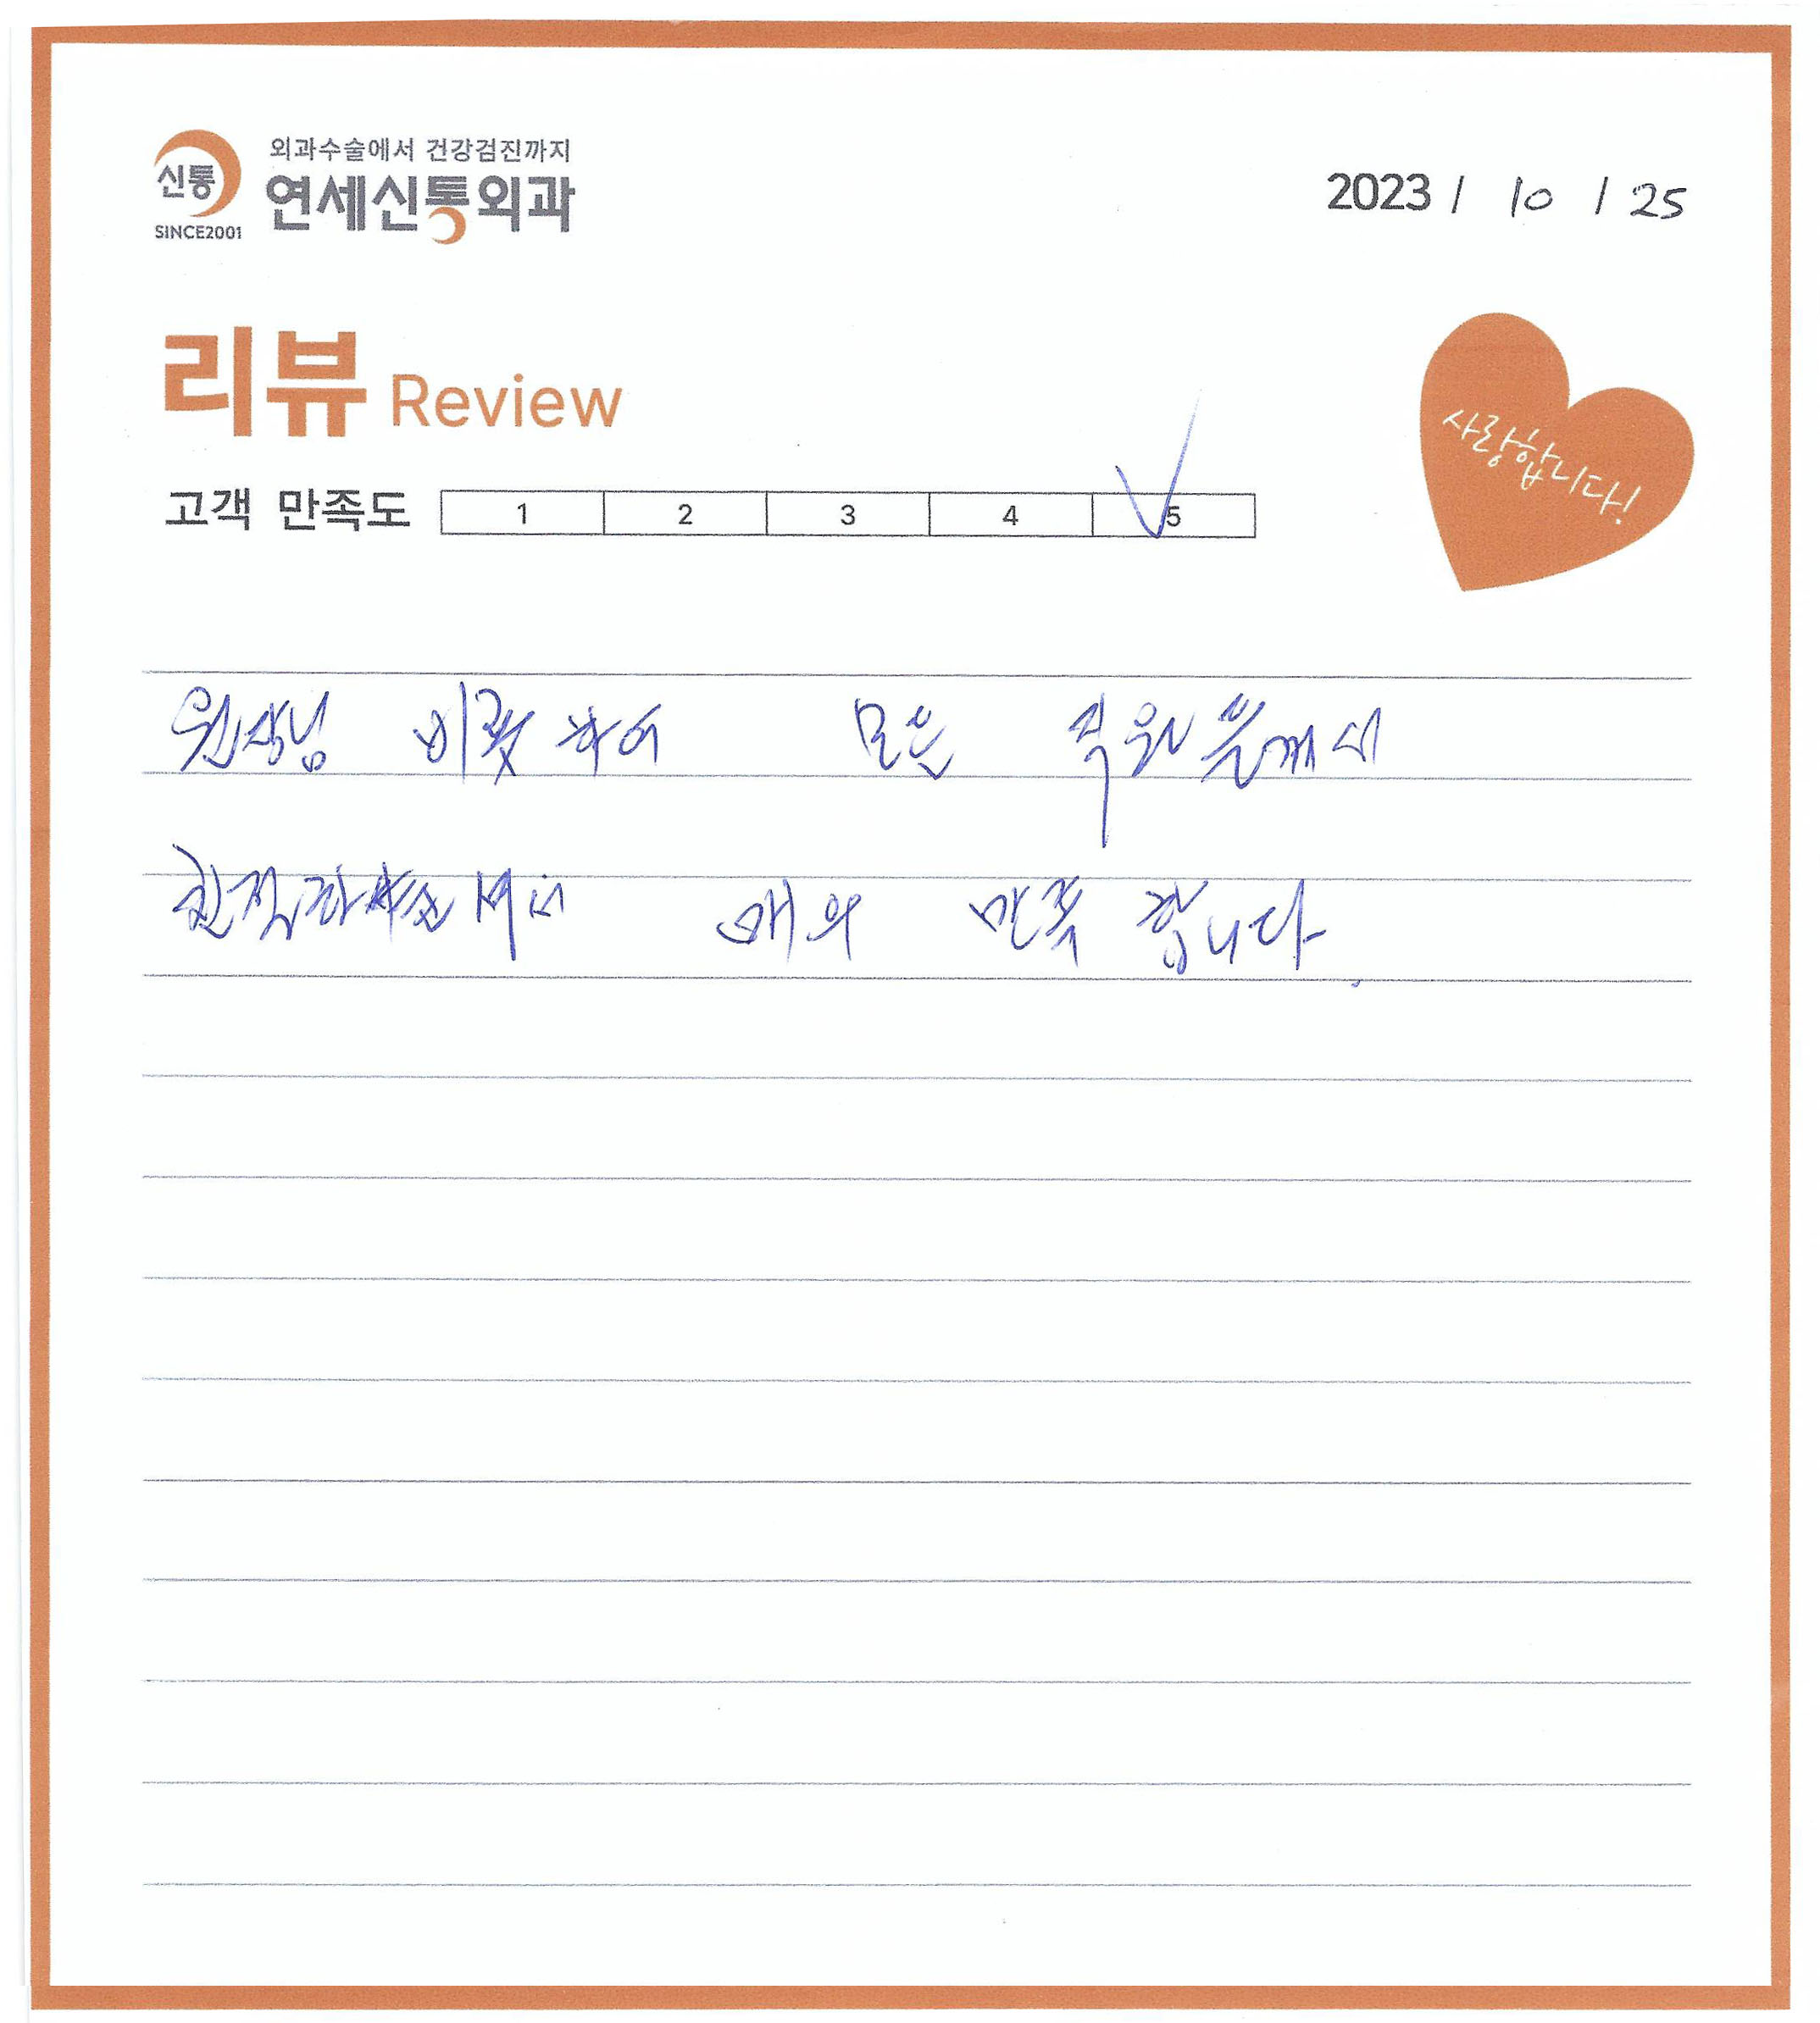 신통
SINCE2001
외과수술에서 건강검진까지
연세신통외과
2023 / 10 / 25
리뷰 Review
사랑합니다!
고객 만족도 1 2 3 4 5
원장님 비롯하여 모든 직원분께서
친절 매우 만족합니다.